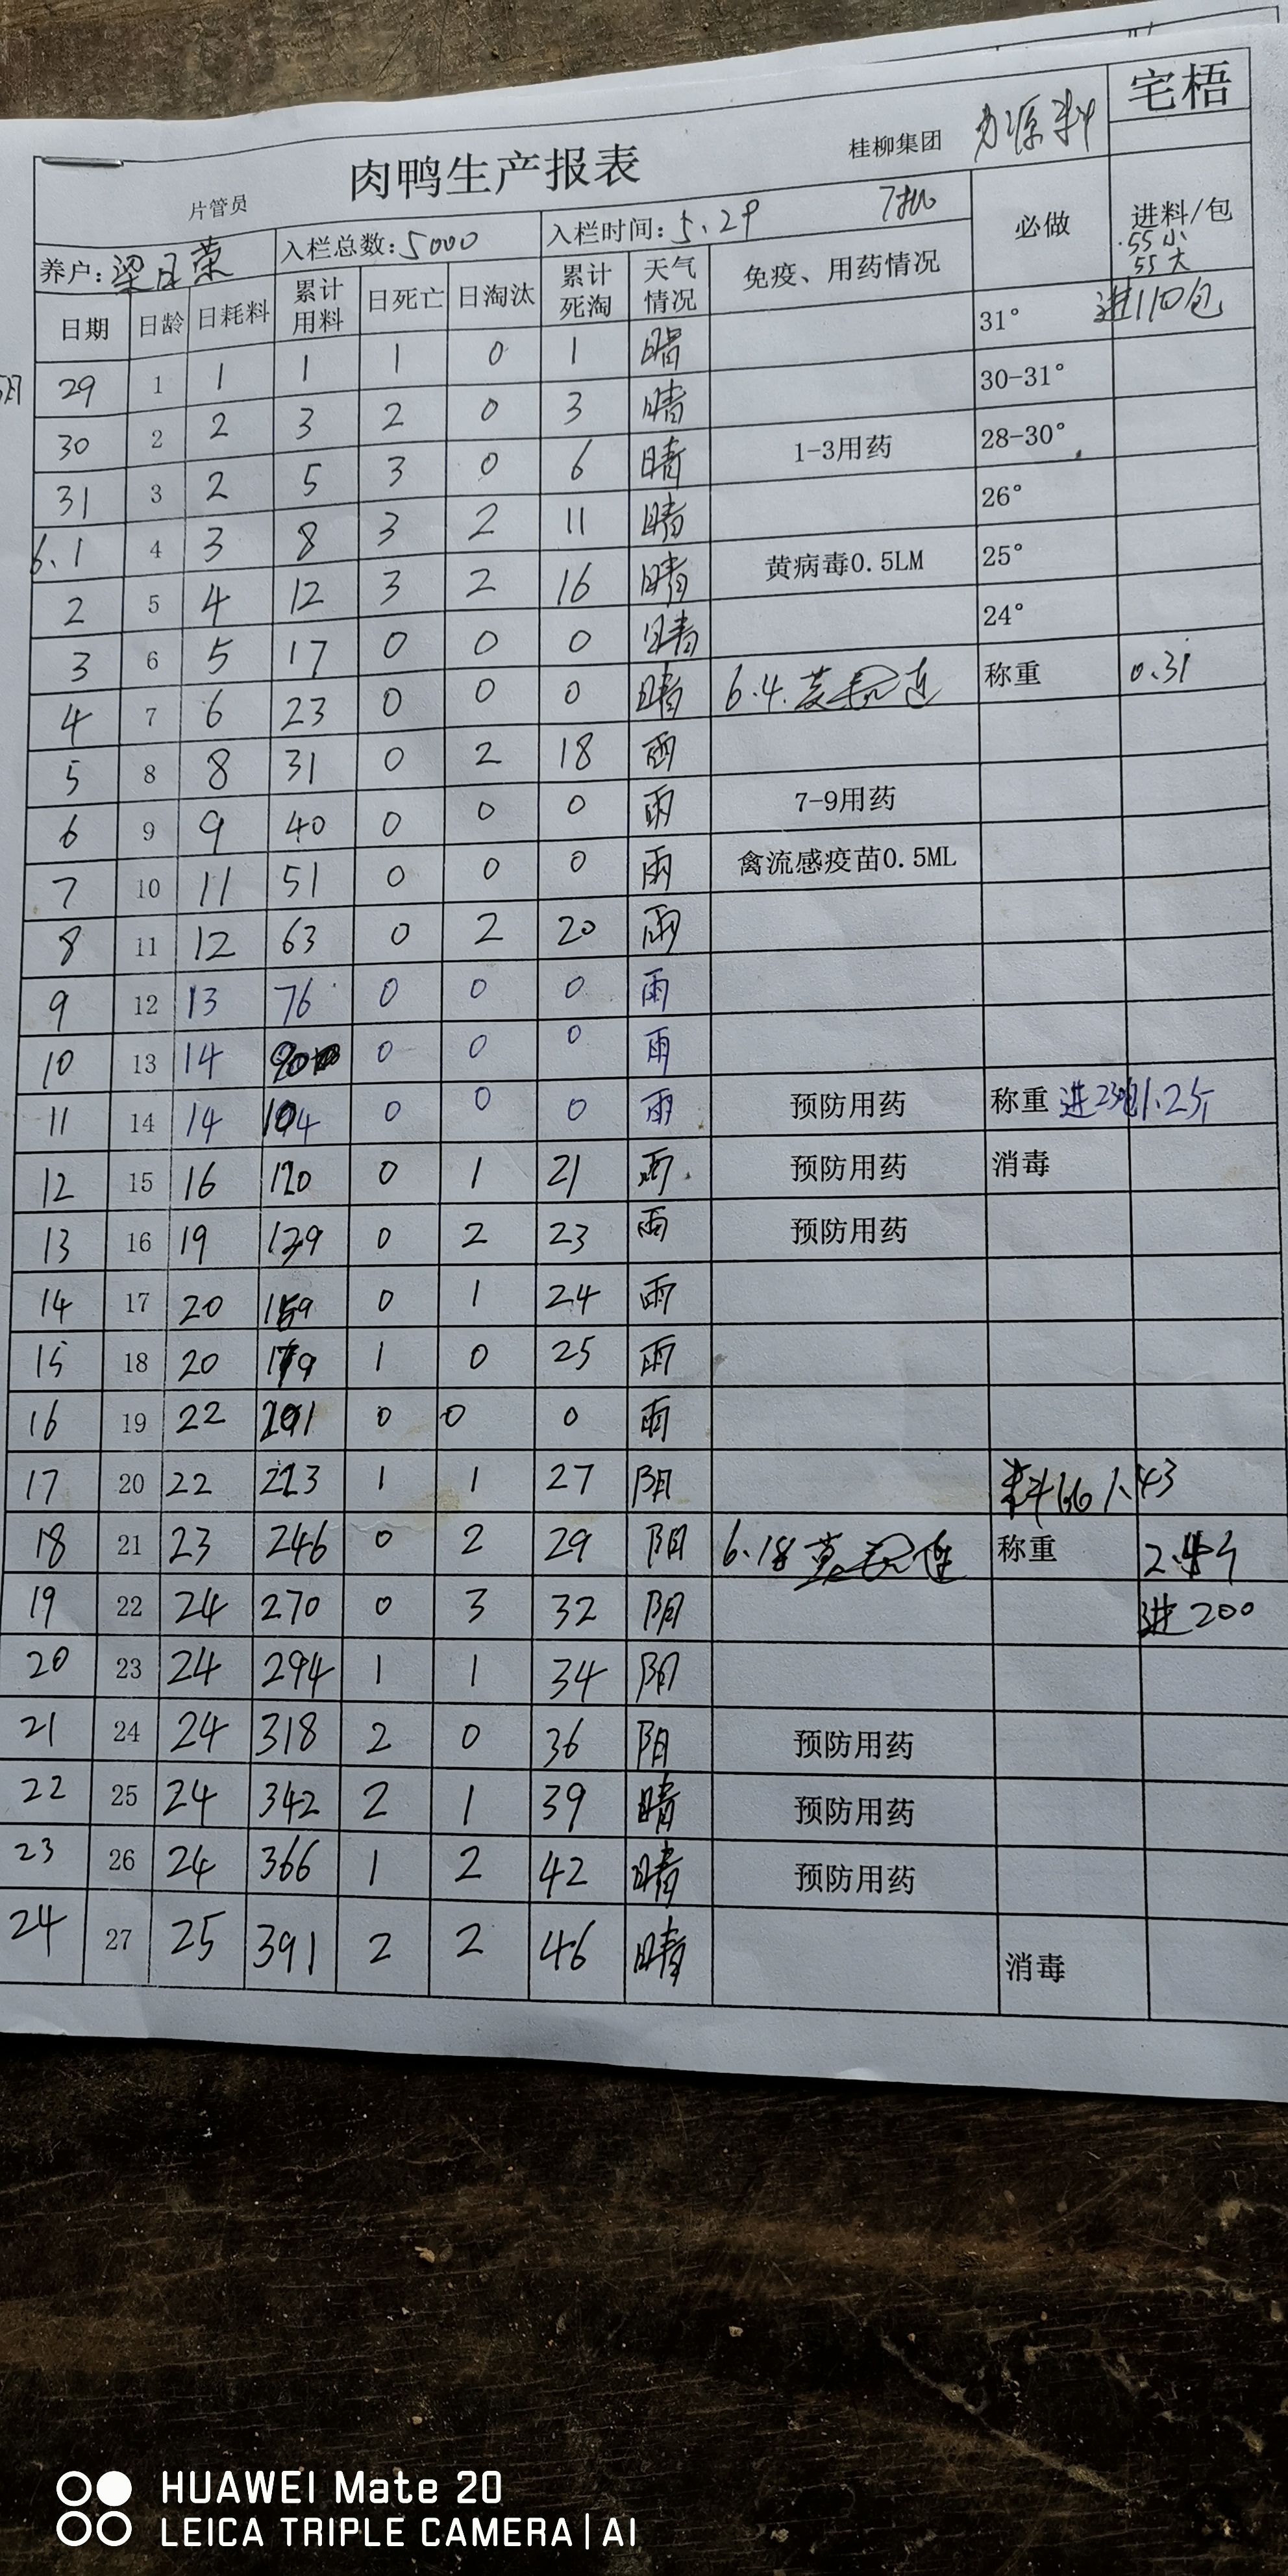 宅梧
肉鸭生产报表 桂柳集团 力源料
片管员
养户: 梁风荣 入栏总数: 5000 入栏时间: 5.29 7批 必做 进料/包
55小
55大
日期 日龄 日耗料 累计用料 日死亡 日淘汰 累计死淘 天气情况 免疫、用药情况
5月 29 1 1 1 1 0 1 晴 31° 进110包
30 2 2 3 2 0 3 晴 30-31°
31 3 2 5 3 0 6 晴 1-3用药 28-30°
6.1 4 3 8 3 2 11 晴 26°
2 5 4 12 3 2 16 晴 黄病毒0.5LM 25°
3 6 5 17 0 0 0 晴 24°
4 7 6 23 0 0 0 晴 6.4. 称重 0.31
5 8 8 31 0 2 18 雨
6 9 9 40 0 0 0 雨 7-9用药
7 10 11 51 0 0 0 雨 禽流感疫苗0.5ML
8 11 12 63 0 2 20 雨
9 12 13 76 0 0 0 雨
10 13 14 90 0 0 0 雨
11 14 14 104 0 0 0 雨 预防用药 称重 进 1.2斤
12 15 16 120 0 1 21 雨 预防用药 消毒
13 16 19 139 0 2 23 雨 预防用药
14 17 20 159 0 1 24 雨
15 18 20 179 1 0 25 雨
16 19 22 201 0 0 0 雨
17 20 22 223 1 1 27 阴 料 1.43
18 21 23 246 0 2 29 阴 6.18 称重
19 22 24 270 0 3 32 阴 进200
20 23 24 294 1 1 34 阴
21 24 24 318 2 0 36 阴 预防用药
22 25 24 342 2 1 39 晴 预防用药
23 26 24 366 1 2 42 晴 预防用药
24 27 25 391 2 2 46 晴 消毒
HUAWEI Mate 20
LEICA TRIPLE CAMERA | AI